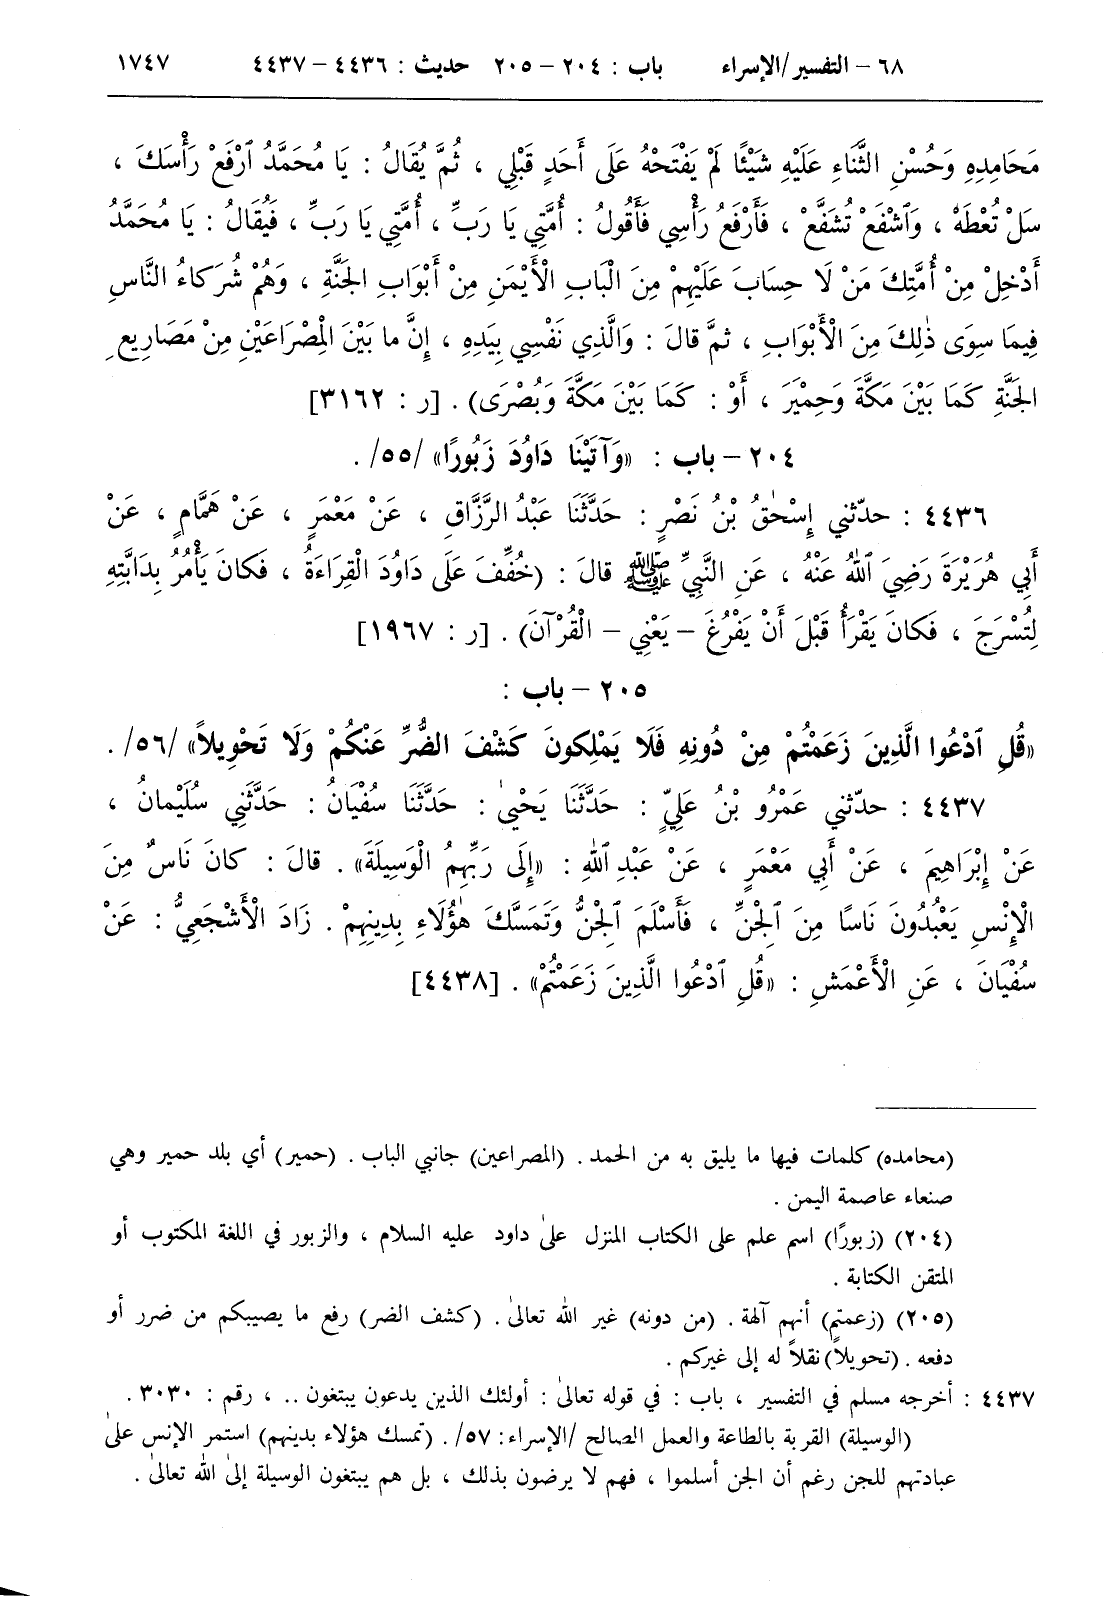 ٦٨ – التفسير/الإسراء باب : ٢٠٤ – ٢٠٥ حديث : ٤٤٣٦ – ٤٤٣٧ ١٧٤٧
مَحَامِدِهِ وَحُسْنِ الثَّنَاءِ عَلَيْهِ شَيْئًا لَمْ يَفْتَحْهُ عَلَى أَحَدٍ قَبْلِي ، ثُمَّ يُقَالُ : يَا مُحَمَّدُ ٱرْفَعْ رَأْسَكَ ،
سَلْ تُعْطَهْ ، وَٱشْفَعْ تُشَفَّعْ ، فَأَرْفَعُ رَأْسِي فَأَقُولُ : أُمَّتِي يَا رَبِّ ، أُمَّتِي يَا رَبِّ ، فَيُقَالُ : يَا مُحَمَّدُ
أَدْخِلْ مِنْ أُمَّتِكَ مَنْ لَا حِسَابَ عَلَيْهِمْ مِنَ الْبَابِ الْأَيْمَنِ مِنْ أَبْوَابِ الجَنَّةِ ، وَهُمْ شُرَكاءُ النَّاسِ
فِيمَا سِوَى ذٰلِكَ مِنَ الْأَبْوَابِ ، ثمَّ قالَ : وَالَّذِي نَفْسِي بِيَدِهِ ، إِنَّ ما بَيْنَ الْمِصْرَاعَيْنِ مِنْ مَصَارِيعِ
الجَنَّةِ كَمَا بَيْنَ مَكَّةَ وَحِمْيَرَ ، أَوْ : كَمَا بَيْنَ مَكَّةَ وَبُصْرَى) . [ر : ٣١٦٢]
٢٠٤ – باب : «وَآتَيْنَا دَاوُدَ زَبُورًا» /٥٥/ .
٤٤٣٦ : حدّثني إِسْحٰقُ بْنُ نَصْرٍ : حَدَّثَنَا عَبْدُ الرَّزَّاقِ ، عَنْ مَعْمَرٍ ، عَنْ هَمَّامٍ ، عَنْ
أَبِي هُرَيْرَةَ رَضِيَ ٱللهُ عَنْهُ ، عَنِ النَّبِيِّ ﷺ قالَ : (خُفِّفَ عَلَى دَاوُدَ الْقِرَاءَةُ ، فَكانَ يَأْمُرُ بِدَابَّتِهِ
لِتُسْرَجَ ، فَكانَ يَقْرَأُ قَبْلَ أَنْ يَفْرُغَ – يَعْنِي – الْقُرْآنَ) . [ر : ١٩٦٧]
٢٠٥ – باب :
«قُلِ ٱدْعُوا الَّذِينَ زَعَمْتُمْ مِنْ دُونِهِ فَلَا يَمْلِكونَ كَشْفَ الضُّرِّ عَنْكُمْ وَلَا تَحْوِيلاً» /٥٦/ .
٤٤٣٧ : حدّثني عَمْرُو بْنُ عَلِيٍّ : حَدَّثَنَا يَحْيىٰ : حَدَّثَنَا سُفْيَانُ : حَدَّثَنِي سُلَيْمانُ ،
عَنْ إِبْرَاهِيمَ ، عَنْ أَبِي مَعْمَرٍ ، عَنْ عَبْدِ ٱللهِ : «إِلَى رَبِّهِمُ الْوَسِيلَةَ» . قالَ : كانَ نَاسٌ مِنَ
الْإِنْسِ يَعْبُدُونَ نَاسًا مِنَ ٱلْجِنِّ ، فَأَسْلَمَ ٱلْجِنُّ وَتَمَسَّكَ هٰؤُلَاءِ بِدِينِهِمْ . زَادَ الْأَشْجَعِيُّ : عَنْ
سُفْيَانَ ، عَنِ الْأَعْمَشِ : «قُلِ ٱدْعُوا الَّذِينَ زَعَمْتُمْ» . [٤٤٣٨]
(محامده) كلمات فيها ما يليق به من الحمد . (المصراعين) جانبي الباب . (حمير) أي بلد حمير وهي
صنعاء عاصمة اليمن .
(٢٠٤) (زبورًا) اسم علم على الكتاب المنزل علىٰ داود عليه السلام ، والزبور في اللغة المكتوب أو
المتقن الكتابة .
(٢٠٥) (زعمتم) أنهم آلهة . (من دونه) غير الله تعالىٰ . (كشف الضر) رفع ما يصيبكم من ضرر أو
دفعه . (تحويلاً) نقلاً له إلى غيركم .
٤٤٣٧ : أخرجه مسلم في التفسير ، باب : في قوله تعالىٰ : أولئك الذين يدعون يبتغون .. ، رقم : ٣٠٣٠ .
(الوسيلة) القربة بالطاعة والعمل الصالح /الإسراء : ٥٧/ . (تمسك هؤلاء بدينهم) استمر الإنس علىٰ
عبادتهم للجن رغم أن الجن أسلموا ، فهم لا يرضون بذلك ، بل هم يبتغون الوسيلة إلىٰ الله تعالىٰ .